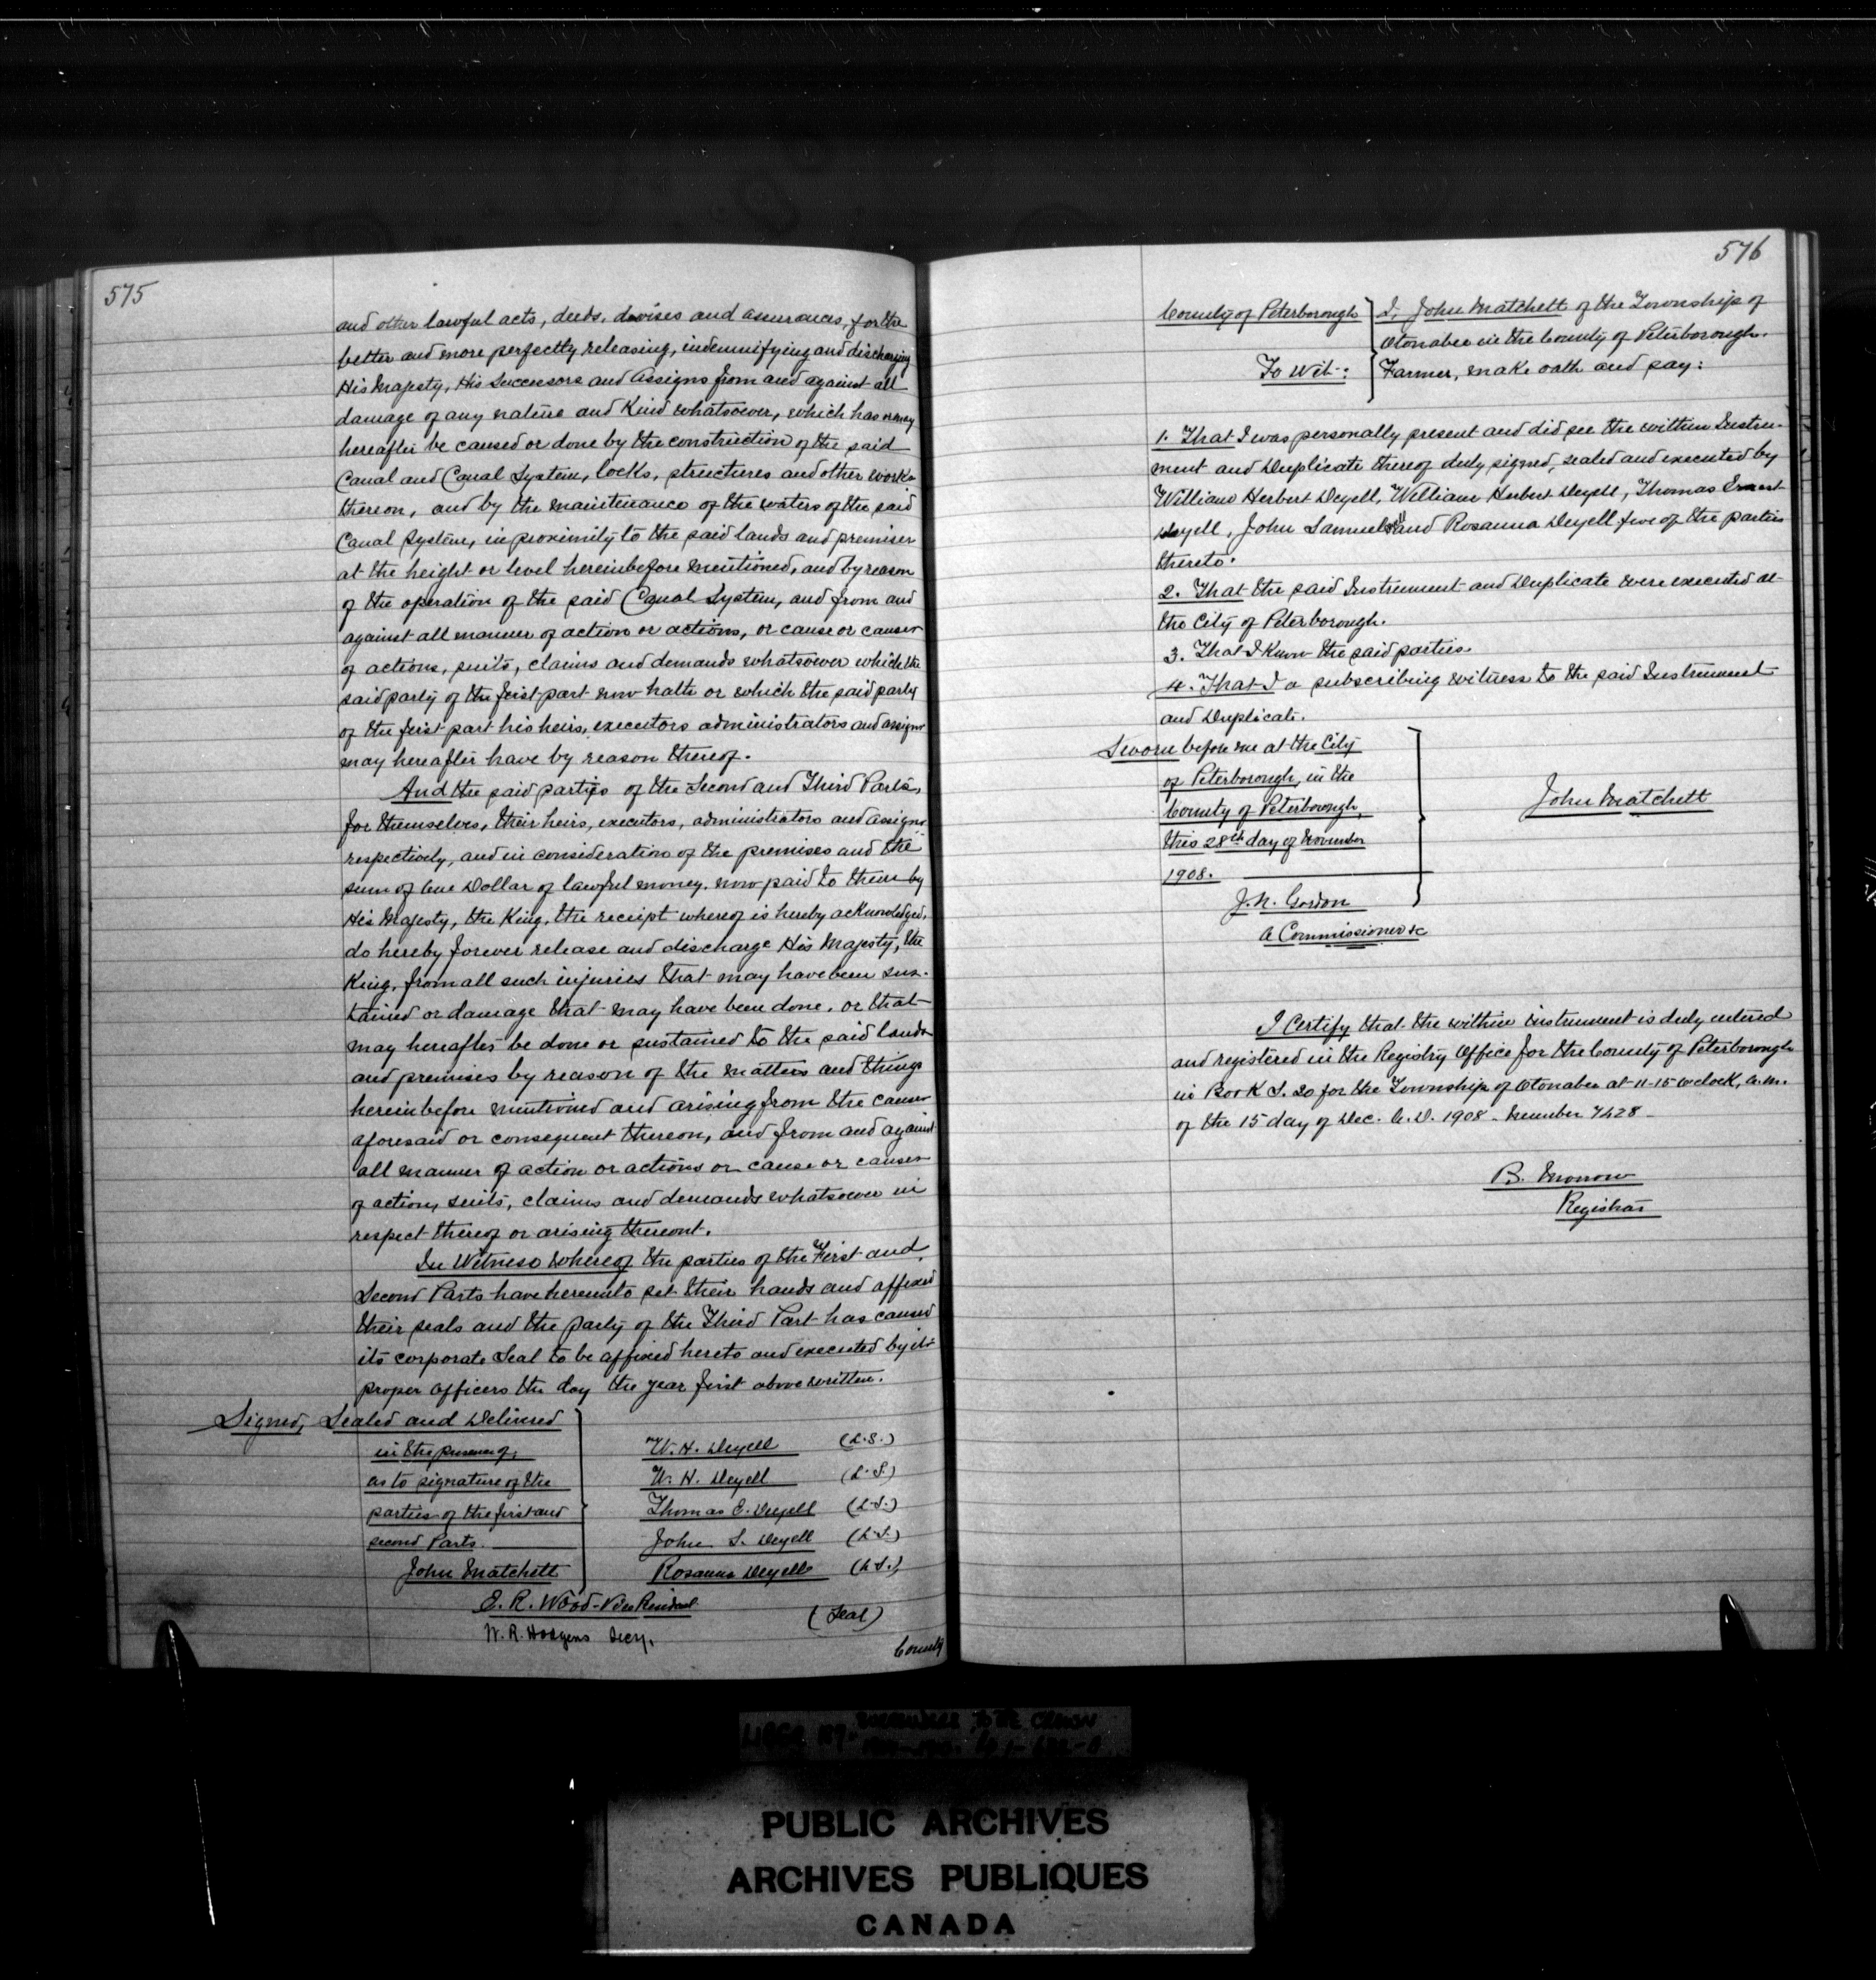 575
and other lawful acts, deeds, devises and assurances, for the
better and more perfectly releasing, indemnifying and discharging
His Majesty, His Successors and Assigns from and against all
damage of any nature and Kind whatsoever, which has or may
hereafter be caused or done by the construction of the said
Canal and Canal System, locks, structures and other works
thereon, and by the maintenance of the waters of the said
Canal System, in proximity to the said lands and premises
at the height or level hereinbefore mentioned, and by reason
of the operation of the said Canal System, and from and
against all manner of action or actions, or cause or causes
of actions, suits, claims and demands whatsoever which the
said party of the first part now hath or which the said party
of the first part his heirs, executors administrators and assigns
may hereafter have by reason thereof.
And the said parties of the Second and Third Parts,
for themselves, their heirs, executors, administrators and assigns
respectively, and in consideration of the premises and the
sum of One Dollar of lawful money, now paid to them by
His Majesty, the King, the receipt whereof is hereby acknowledged,
do hereby forever release and discharge His Majesty, the
King, from all such injuries that may have been sus-
tained or damage that may have been done, or that
may hereafter be done or sustained to the said lands
and premises by reason of the matters and things
hereinbefore mentioned and arising from the causes
aforesaid or consequent thereon, and from and against
all manner of action or actions or cause or causes
of action, suits, claims and demands whatsoever in
respect thereof or arising thereout.
In Witness whereof the parties of the First and
Second Parts have hereunto set their hands and affixed
their seals and the party of the Third Part has caused
its corporate Seal to be affixed hereto and executed by its
proper officers the day the year first above written.
Signed, Sealed and Delivered
in the presence of,
as to signature of the
parties of the first and
second Parts.
John Matchett
W. H. Deyell (L.S.)
W. H. Deyell (L.S.)
Thomas E. Deyell (L.S.)
John S. Deyell (L.S.)
Rosanna Deyell (L.S.)
E. R. Wood - Vice President
W. R. Hodgens Secy.
(Seal)
County
576
County of Peterborough
To Wit:
I, John Matchett of the Township of
Otonabee in the County of Peterborough.
Farmer, make oath and say:
1. That I was personally present and did see the within Instru-
ment and Duplicate thereof duly signed, sealed and executed by
William Herbert Deyell, William Herbert Deyell, Thomas Ernest
Deyell, John Samuel Deyell and Rosanna Deyell five of the parties
thereto.
2. That the said Instrument and Duplicate were executed at
the City of Peterborough.
3. That I Know the said parties.
4. That I a subscribing witness to the said Instrument
and Duplicate.
Sworn before me at the City
of Peterborough, in the
County of Peterborough,
this 28th day of November
1908.
J. N. Gordon
A Commissioner &c
John Matchett
I Certify that the within instrument is duly entered
and registered in the Registry Office for the County of Peterborough
in Book S. 20 for the Township of Otonabee at 11-15 o'clock, a.m.
of the 15 day of Dec. A.D. 1908 - Number 7428 -
B. Morrow
Registrar
PUBLIC ARCHIVES
ARCHIVES PUBLIQUES
CANADA